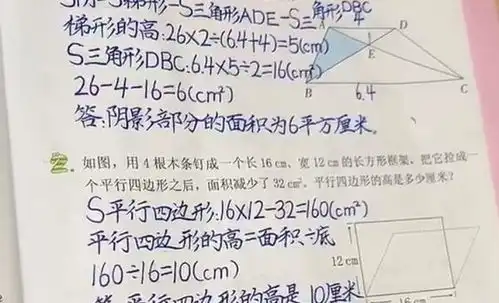 S梯形-S三角形ADE-S三角形DBC
梯形的高:26×2÷(6.4+4)=5(cm)
S三角形DBC:6.4×5÷2=16(cm²)
26-4-16=6(cm²)
答:阴影部分的面积为6平方厘米。
4
D
E
B
6.4
C
如图,用4根木条钉成一个长16 cm、宽12 cm的长方形框架。把它拉成
一个平行四边形之后,面积减少了32 cm²。平行四边形的高是多少厘米?
S平行四边形:16×12-32=160(cm²)
平行四边形的高=面积÷底
160÷16=10(cm)
答:平行四边形的高是10厘米
12 cm
16 cm